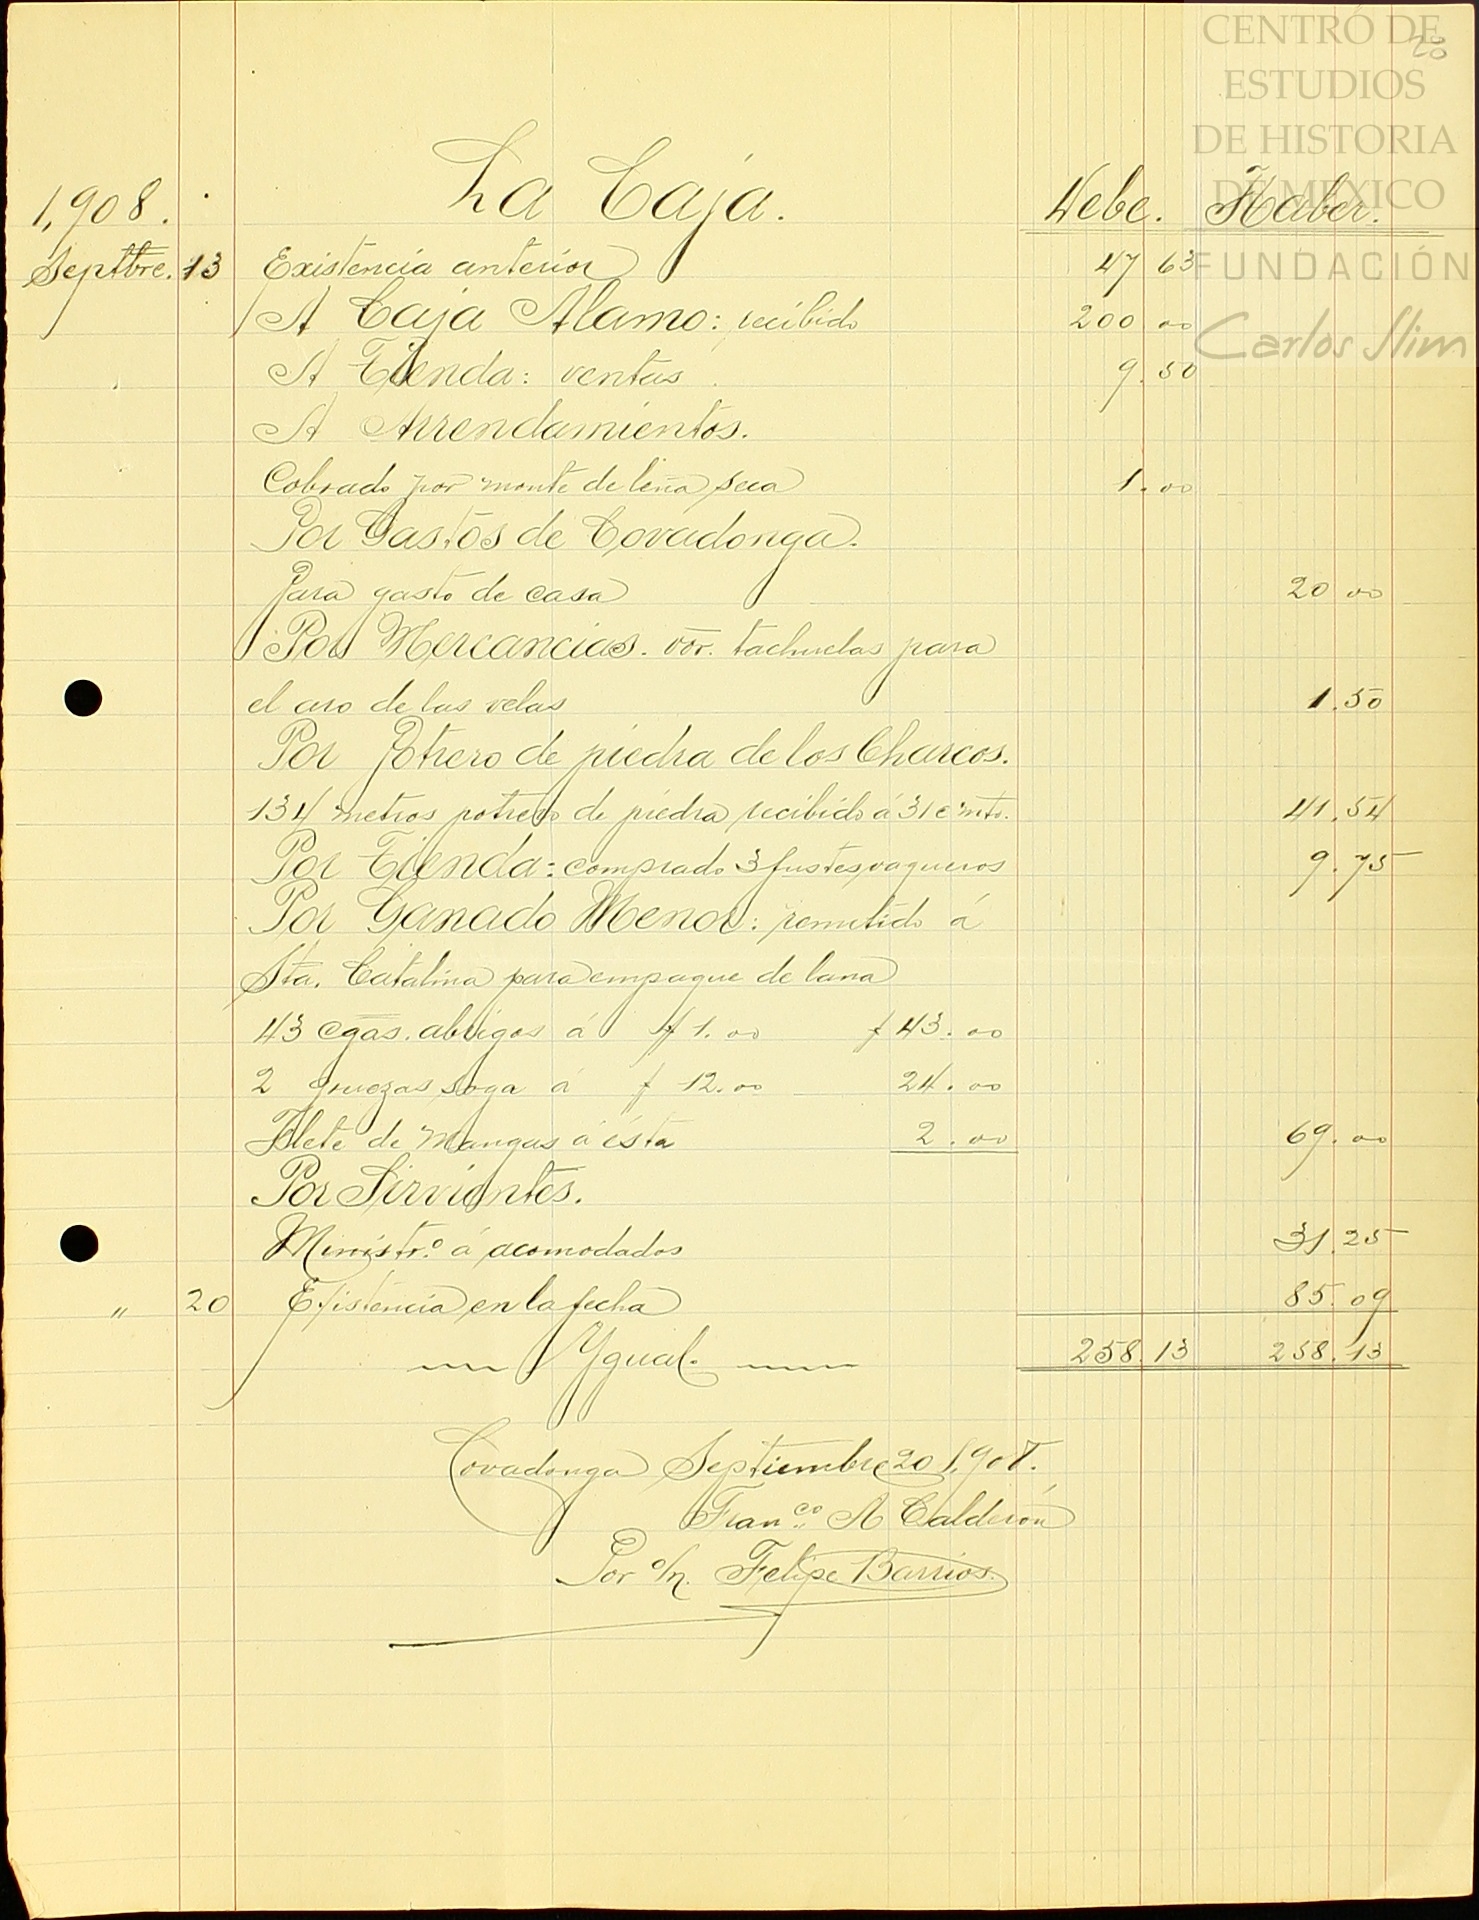 CENTRO DE
ESTUDIOS
DE HISTORIA
DE MÉXICO
FUNDACIÓN
Carlos Slim
28
1,908. La Caja. Debe. Haber.
Septbre. 13 Existencia anterior 47 63
A Caja Alamo: recibido 200 00
A Tienda: ventas 9.50
A Arrendamientos.
Cobrado por monte de leña seca 1.00
Por Gastos de Covadonga.
Para gasto de casa 20 00
Por Mercancias. vor. tachuelas para
el aro de las velas 1.50
Por Potrero de piedra de los Charcos.
134 metros potrero de piedra recibido á 31c mto. 41.54
Por Tienda: comprado 3 fustes vaqueros 9.75
Por Ganado Menor: remitido á
Sta. Catalina para empaque de lana
43 cgas. abrigos á $ 1.00 $ 43.00
2 gruezas soga á $ 12.00 24.00
Flete de Mangas á ésta 2.00 69.00
Por Sirvientes.
Ministr.º á acomodados 31.25
" 20 Existencia en la fecha 85.09
Ygual. 258.13 258.13
Covadonga Septiembre 20 1,908.
Fran.co A Calderon
Por o/n. Felipe Barrios.